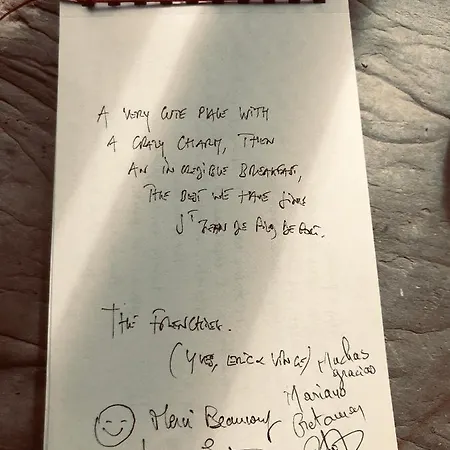 A VERY CUTE PLACE WITH
A CRAZY CHARM, THEN
AN INCREDIBLE BREAKFAST,
THE BEST WE HAVE SINCE
ST JEAN DE PIED DE PORT.
THE FRENCHIES.
(YVES, ERIC & VINCE)
Muchas
gracias
Mariano
Merci Beaucoup